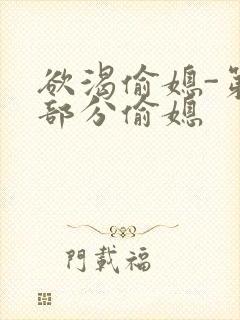 欲渴偷媳-第
部分偷媳
門載福